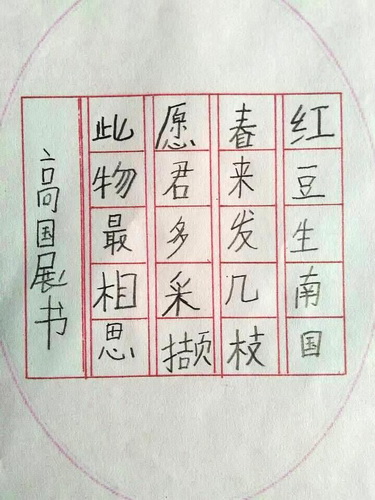 红豆生南国
春来发几枝
愿君多采撷
此物最相思
高国展书